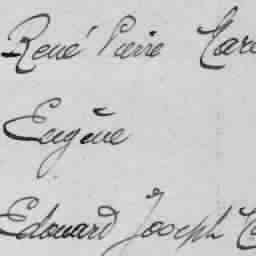 René Pierre
Eugène
Edouard Joseph